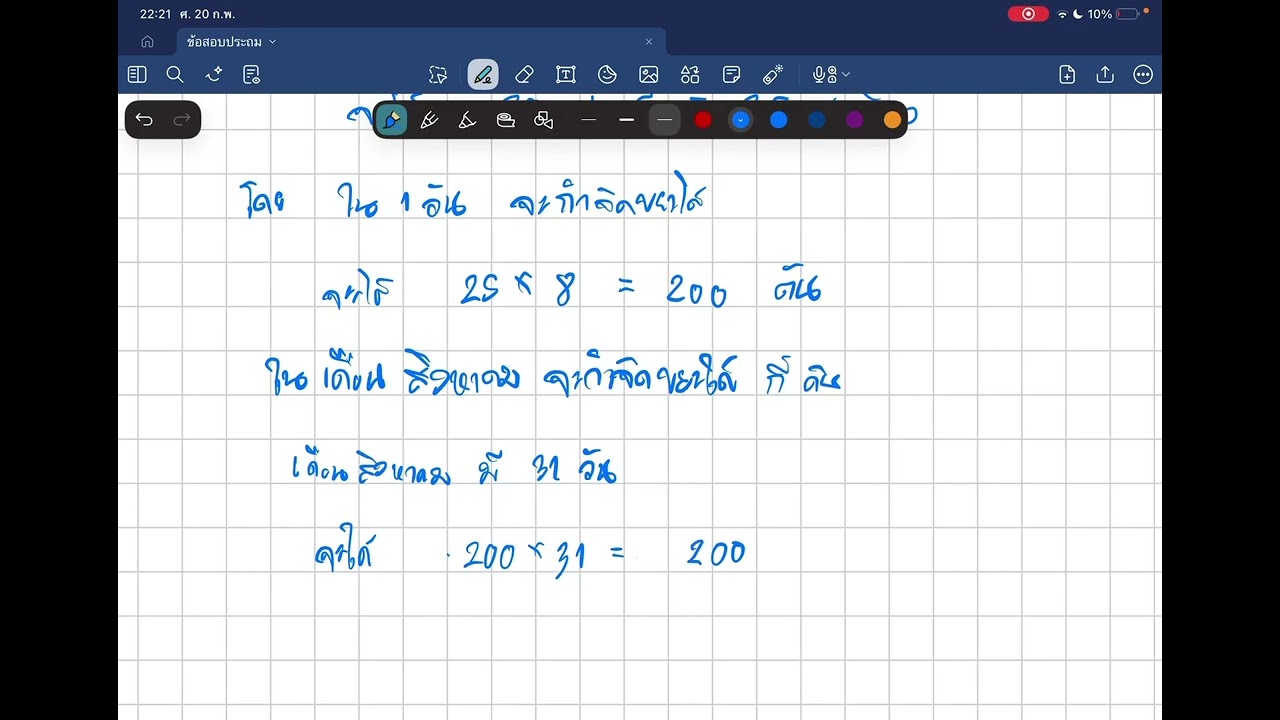 22:21 ศ. 20 ก.พ.
10%
ข้อสอบประถม
โดย ใน 1 วัน จะกำจัดขยะได้
จะได้ 25 × 8 = 200 ตัน
ในเดือน สิงหาคม จะกำจัดขยะได้ กี่ ตัน
เดือนสิงหาคม มี 31 วัน
จะได้ 200 × 31 = 200